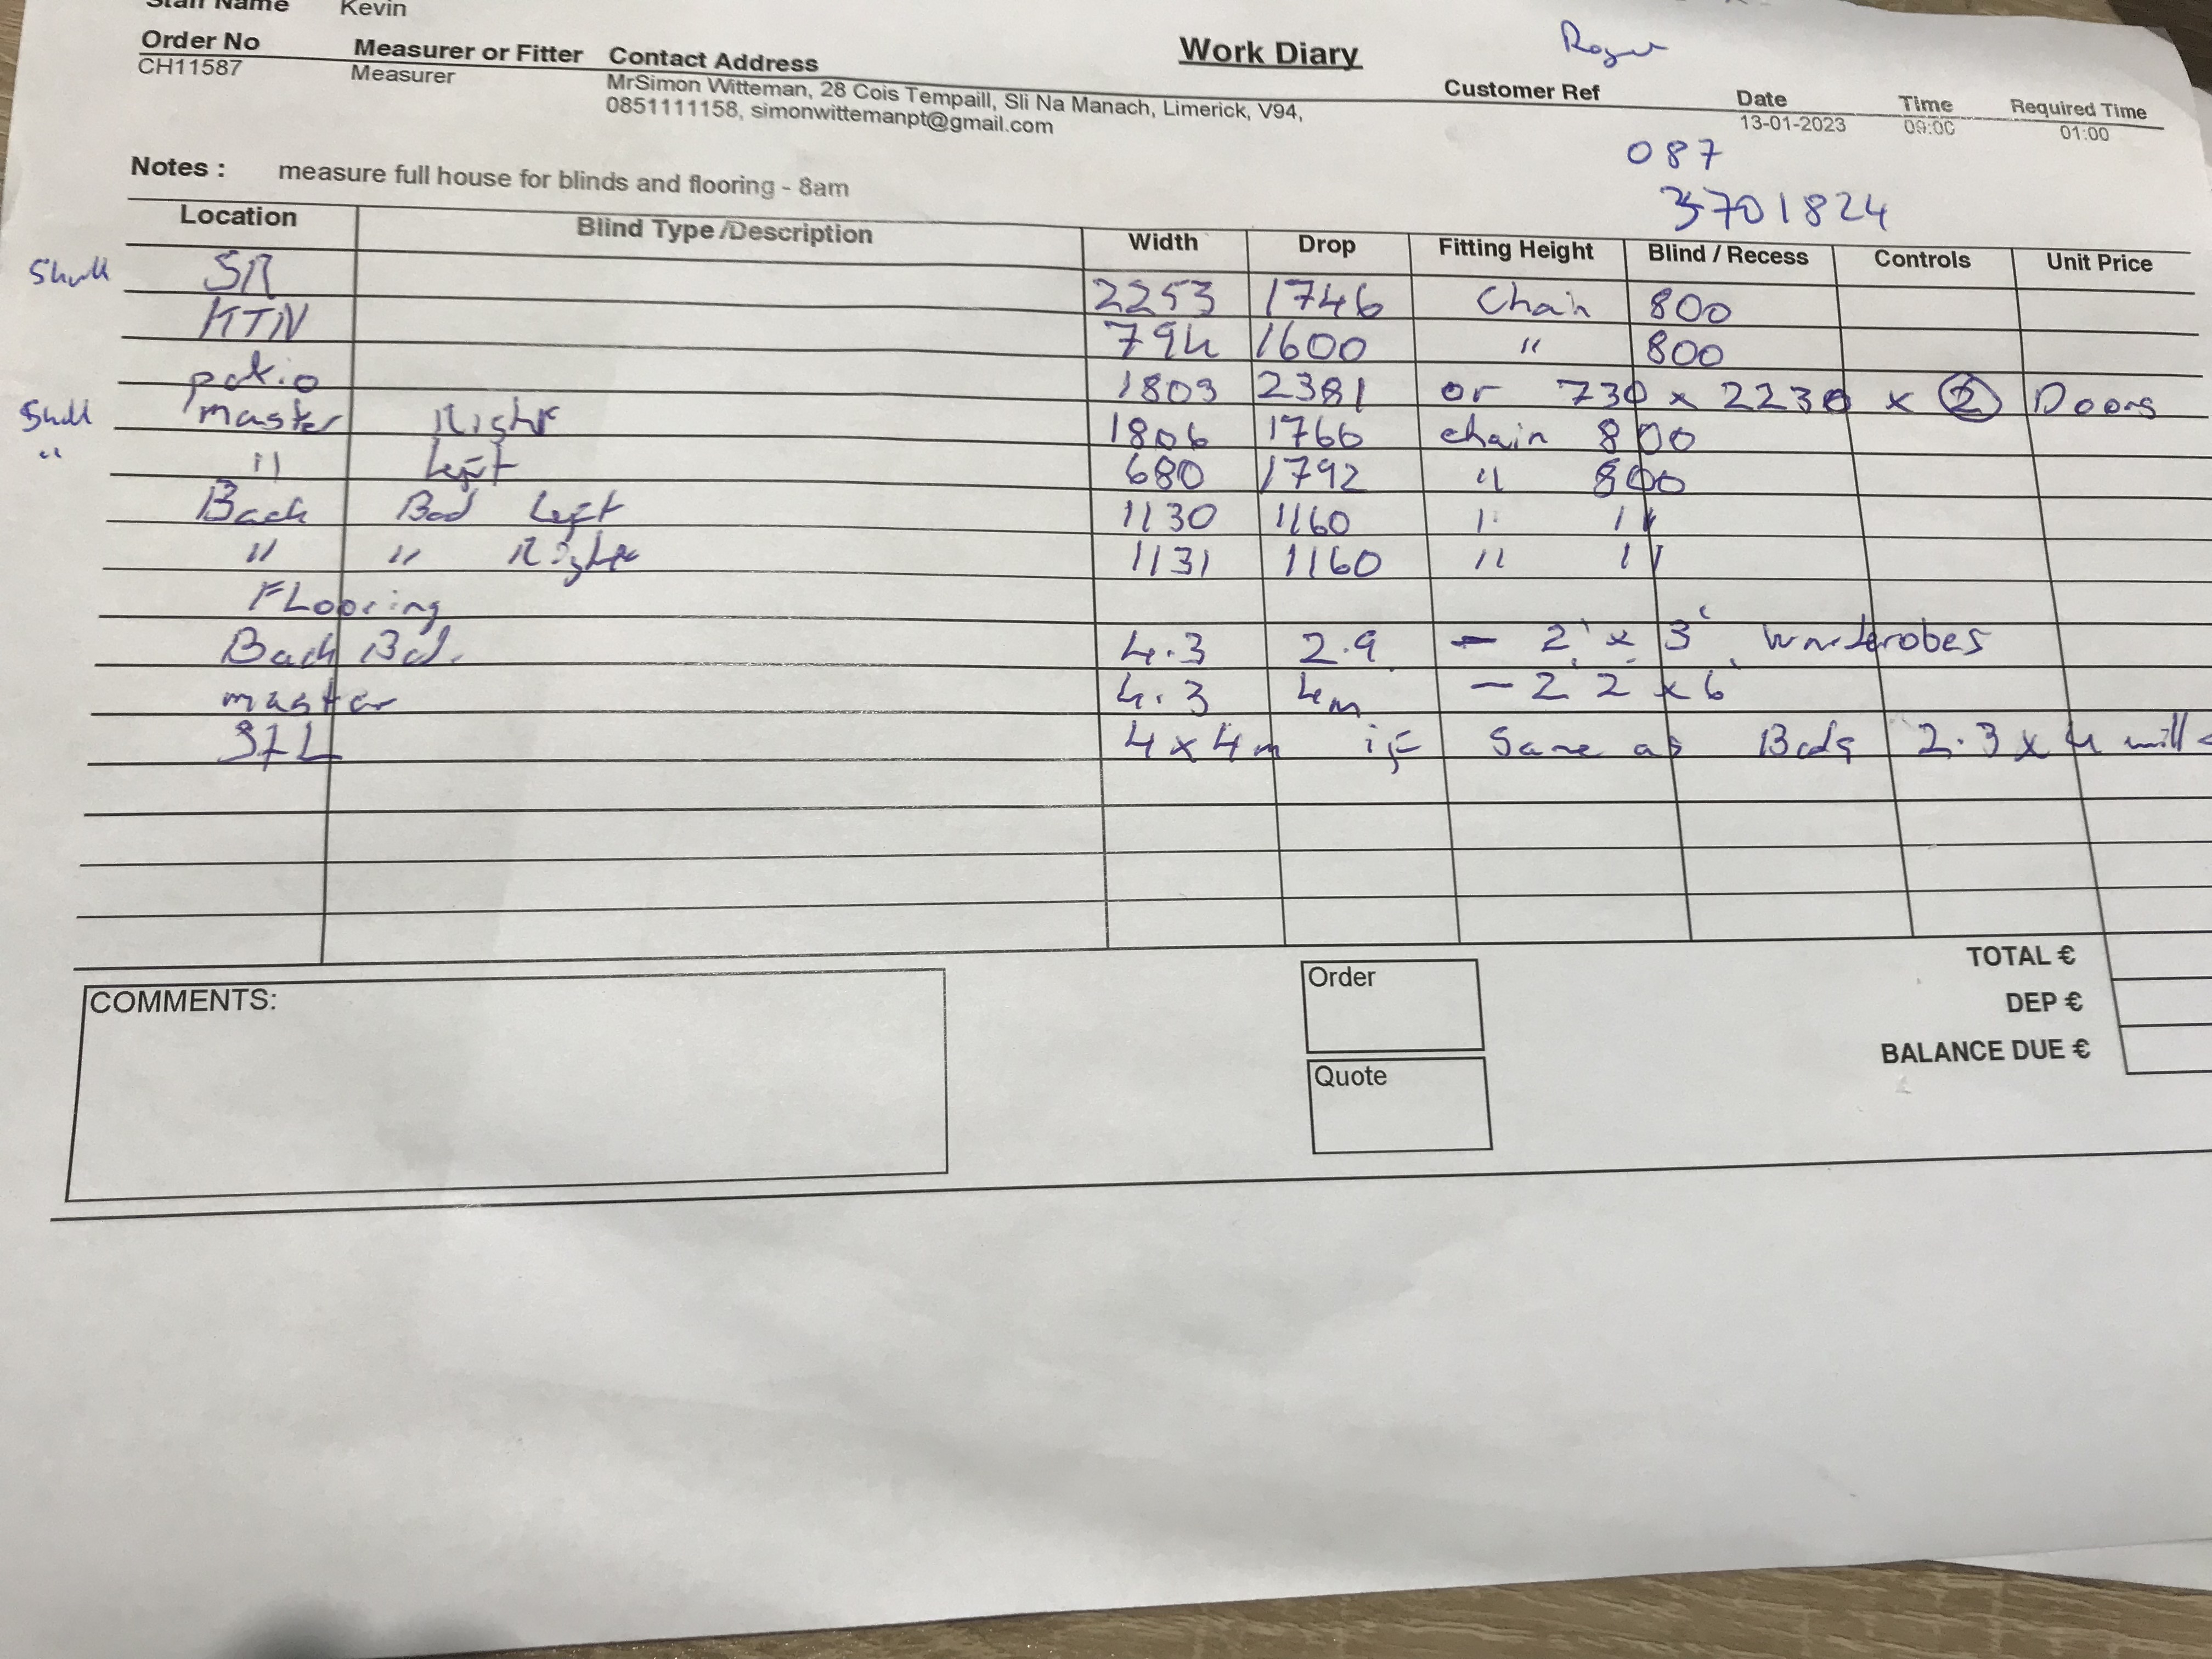 Staff Name Kevin
Work Diary
Roger
Order No Measurer or Fitter Contact Address Customer Ref Date Time Required Time
CH11587 Measurer MrSimon Witteman, 28 Cois Tempaill, Sli Na Manach, Limerick, V94, 13-01-2023 09:00 01:00
0851111158, simonwittemanpt@gmail.com
087
3701824
Notes : measure full house for blinds and flooring - 8am
Location Blind Type /Description Width Drop Fitting Height Blind / Recess Controls Unit Price
SR 2253 1746 Chain 800
KTN 794 1600 " 800
patio 1803 2381 or 730 x 2230 x 2 Doors
master Right 1806 1766 chain 800
" Left 680 1792 " 800
Back Bed Left 1130 1160 " "
" " Right 1131 1160 " "
FLooring
Back Bd. 4.3 2.9 - 2' x 3' warderobes
master 4.3 4m - 2 2 x 6
4 x 4m if same as Bds 2.3 x 4 will
COMMENTS:
Order
Quote
TOTAL €
DEP €
BALANCE DUE €